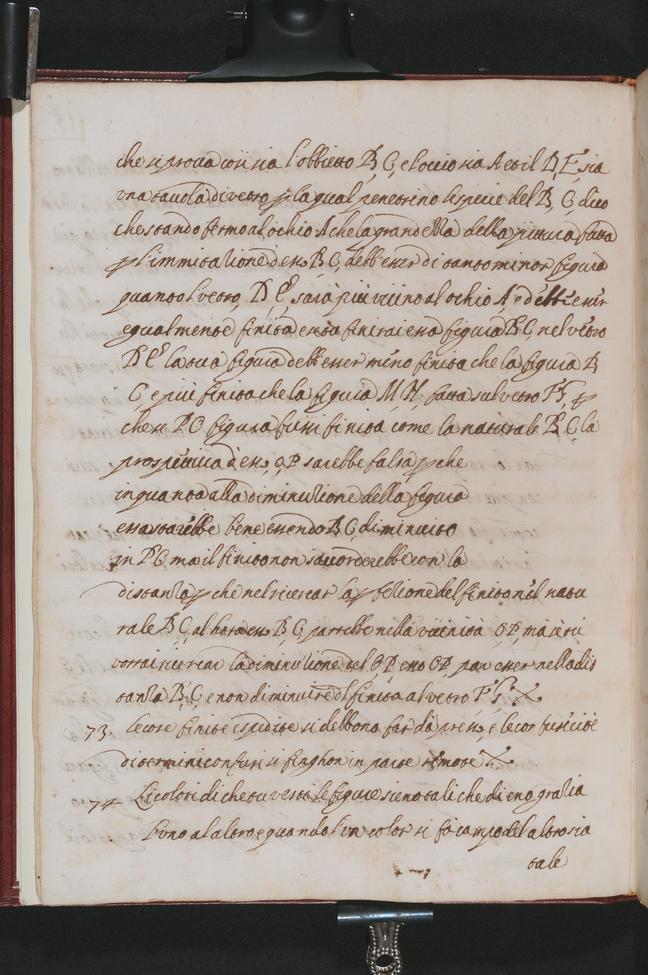 che si prova così sia l'obbietto B, C, e l'occio sia A et il D, E sia
una tavola di vetro p la qual penetrino le spetie del B, C, dico
che stando fermo al ochio A che la grandezza della pittura fatta
p l'immitatione d'esso B C, debb'esser di tanto minor figura
quanto l vetro, D E, sarà più vicino al ochio A e debbe esser
egualmente finita essa finirai essa figura B C, nel vetro
D E la tua figura debb'esser meno finita che la figura B
C, e più finita che la figura M, N, fatta sul vetro F G, p
che se P O figura fussi finita come la naturale B C, la
prospettiva d'esso, O P sarebbe falsa p che
in quanto alla diminutione della figura
essa starebbe bene essendo B C, diminuito
in P O ma il finito non s'accorderebbe con la
distantia p che nel ricercar la pfetione del finito nel natu
rale B C, al hora esso B C, parrebbe nella vicinità O P, ma se tu
vorrai ricercar la diminutione del O P, esso O P, par esser nella dis
tantia B, C, e non diminuire il finito al vetro F G
73 Le cose finite e spedite si debbono far da presso e le cose finite
di termini confusi si finghon in parte remote
74 Li colori di che tu vesti le figure sieno tali che dieno gratia
l'uno al altro e quando l'un color si fa campo del altro sia
tale